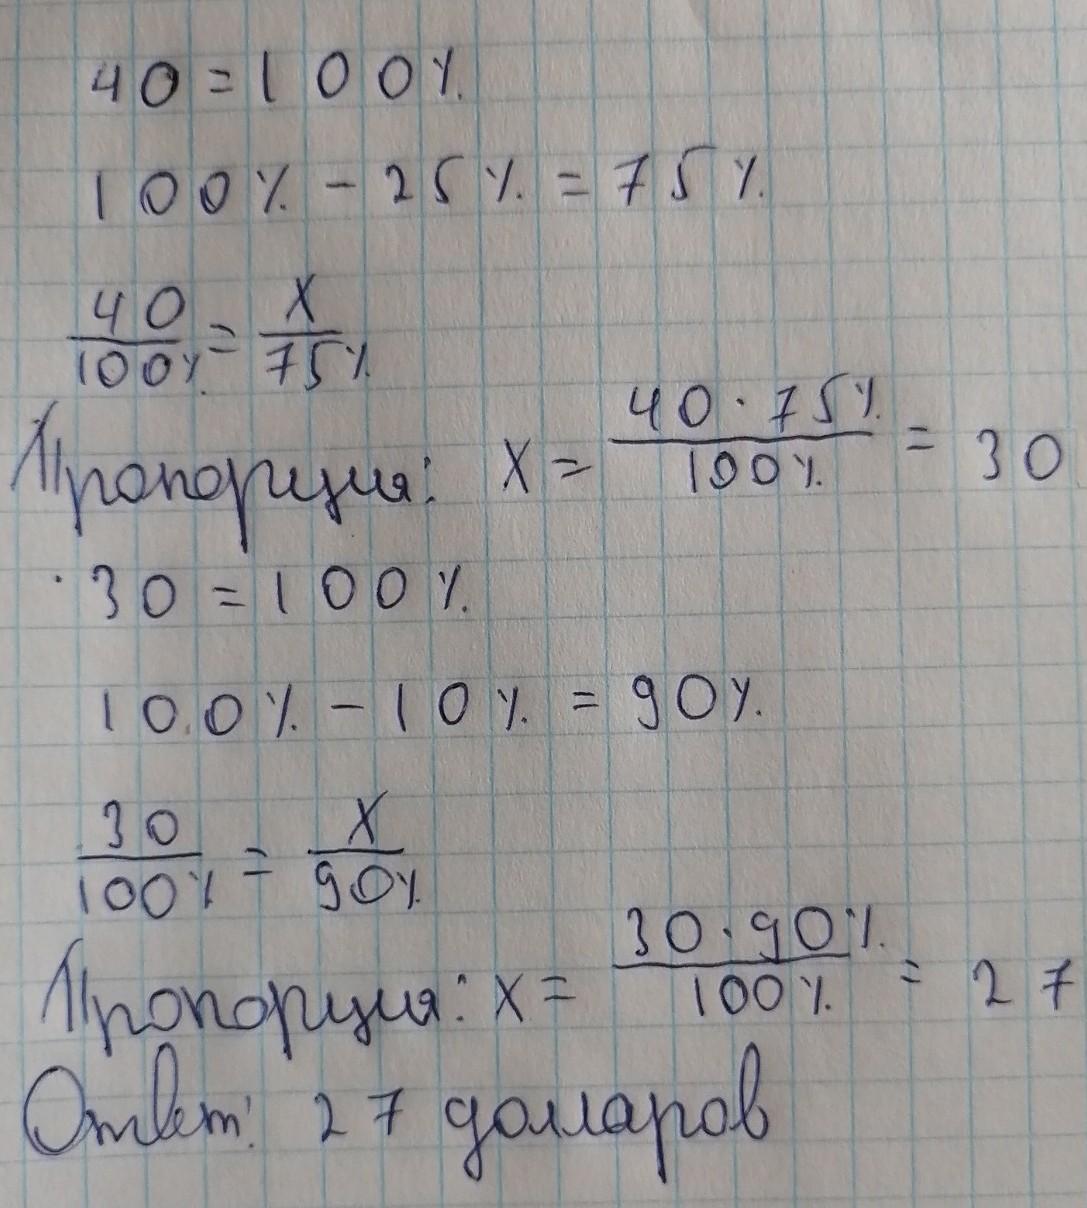 40 = 100%
100% - 25% = 75%
40/100% = x/75%
Пропорция: x = 40 · 75%/100% = 30
30 = 100%
100% - 10% = 90%
30/100% = x/90%
Пропорция: x = 30 · 90%/100% = 27
Ответ: 27 долларов